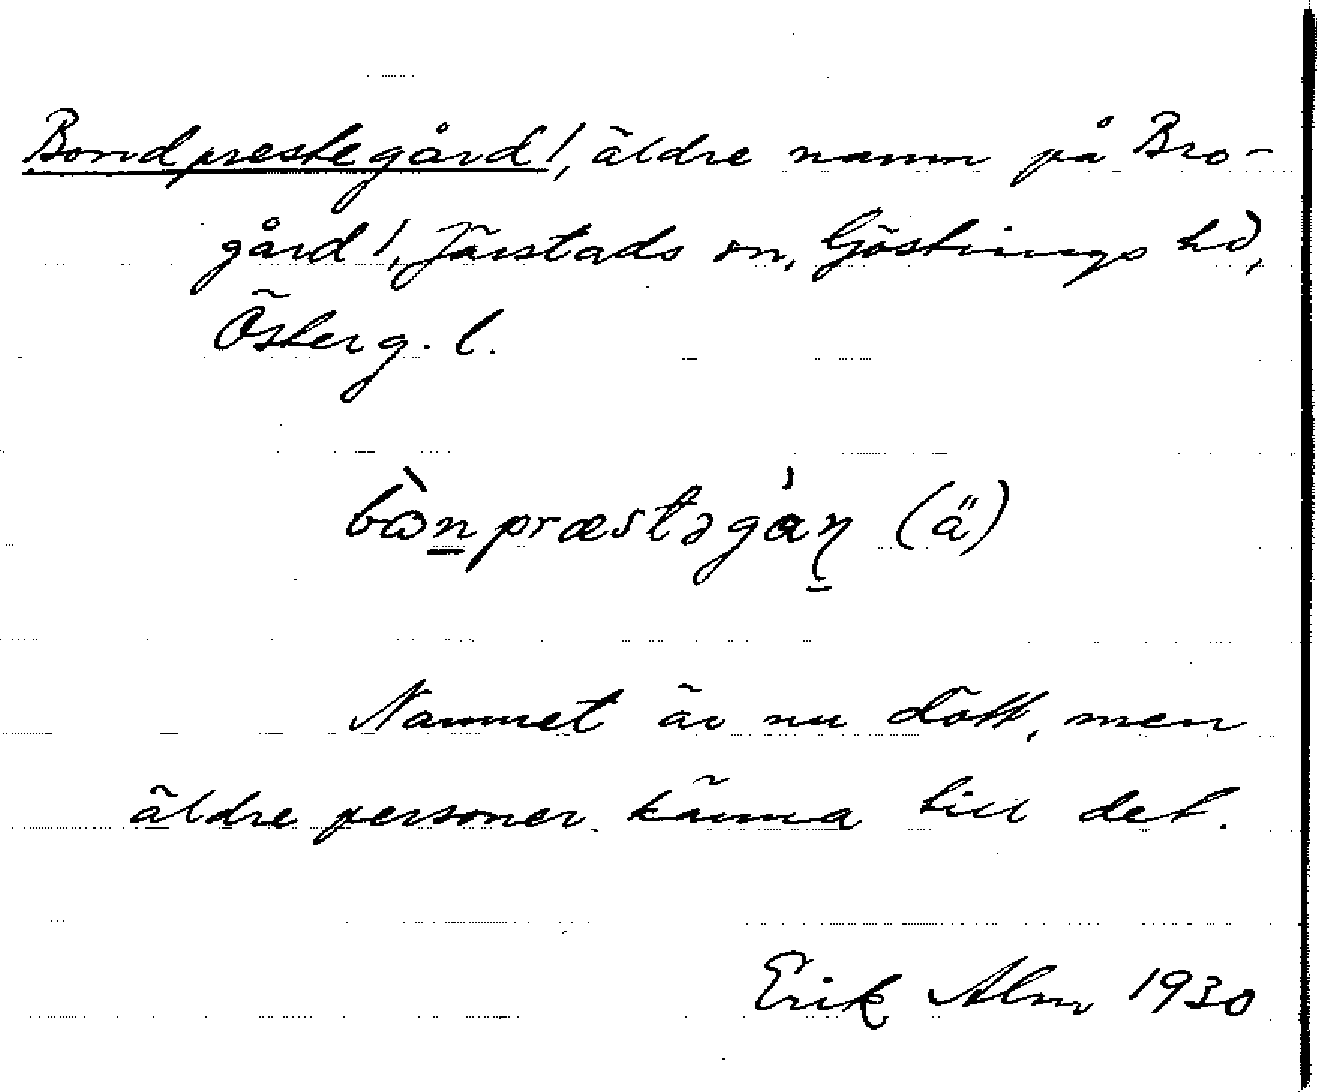 Bondprestegård!, äldre namn på Bro-
gård!, Järstads sn, Göstrings hd,
Österg. l.
bònpræstəgáɳ (ä)
Namnet är nu dött, men
äldre personer känna till det.
Erik Alm 1930